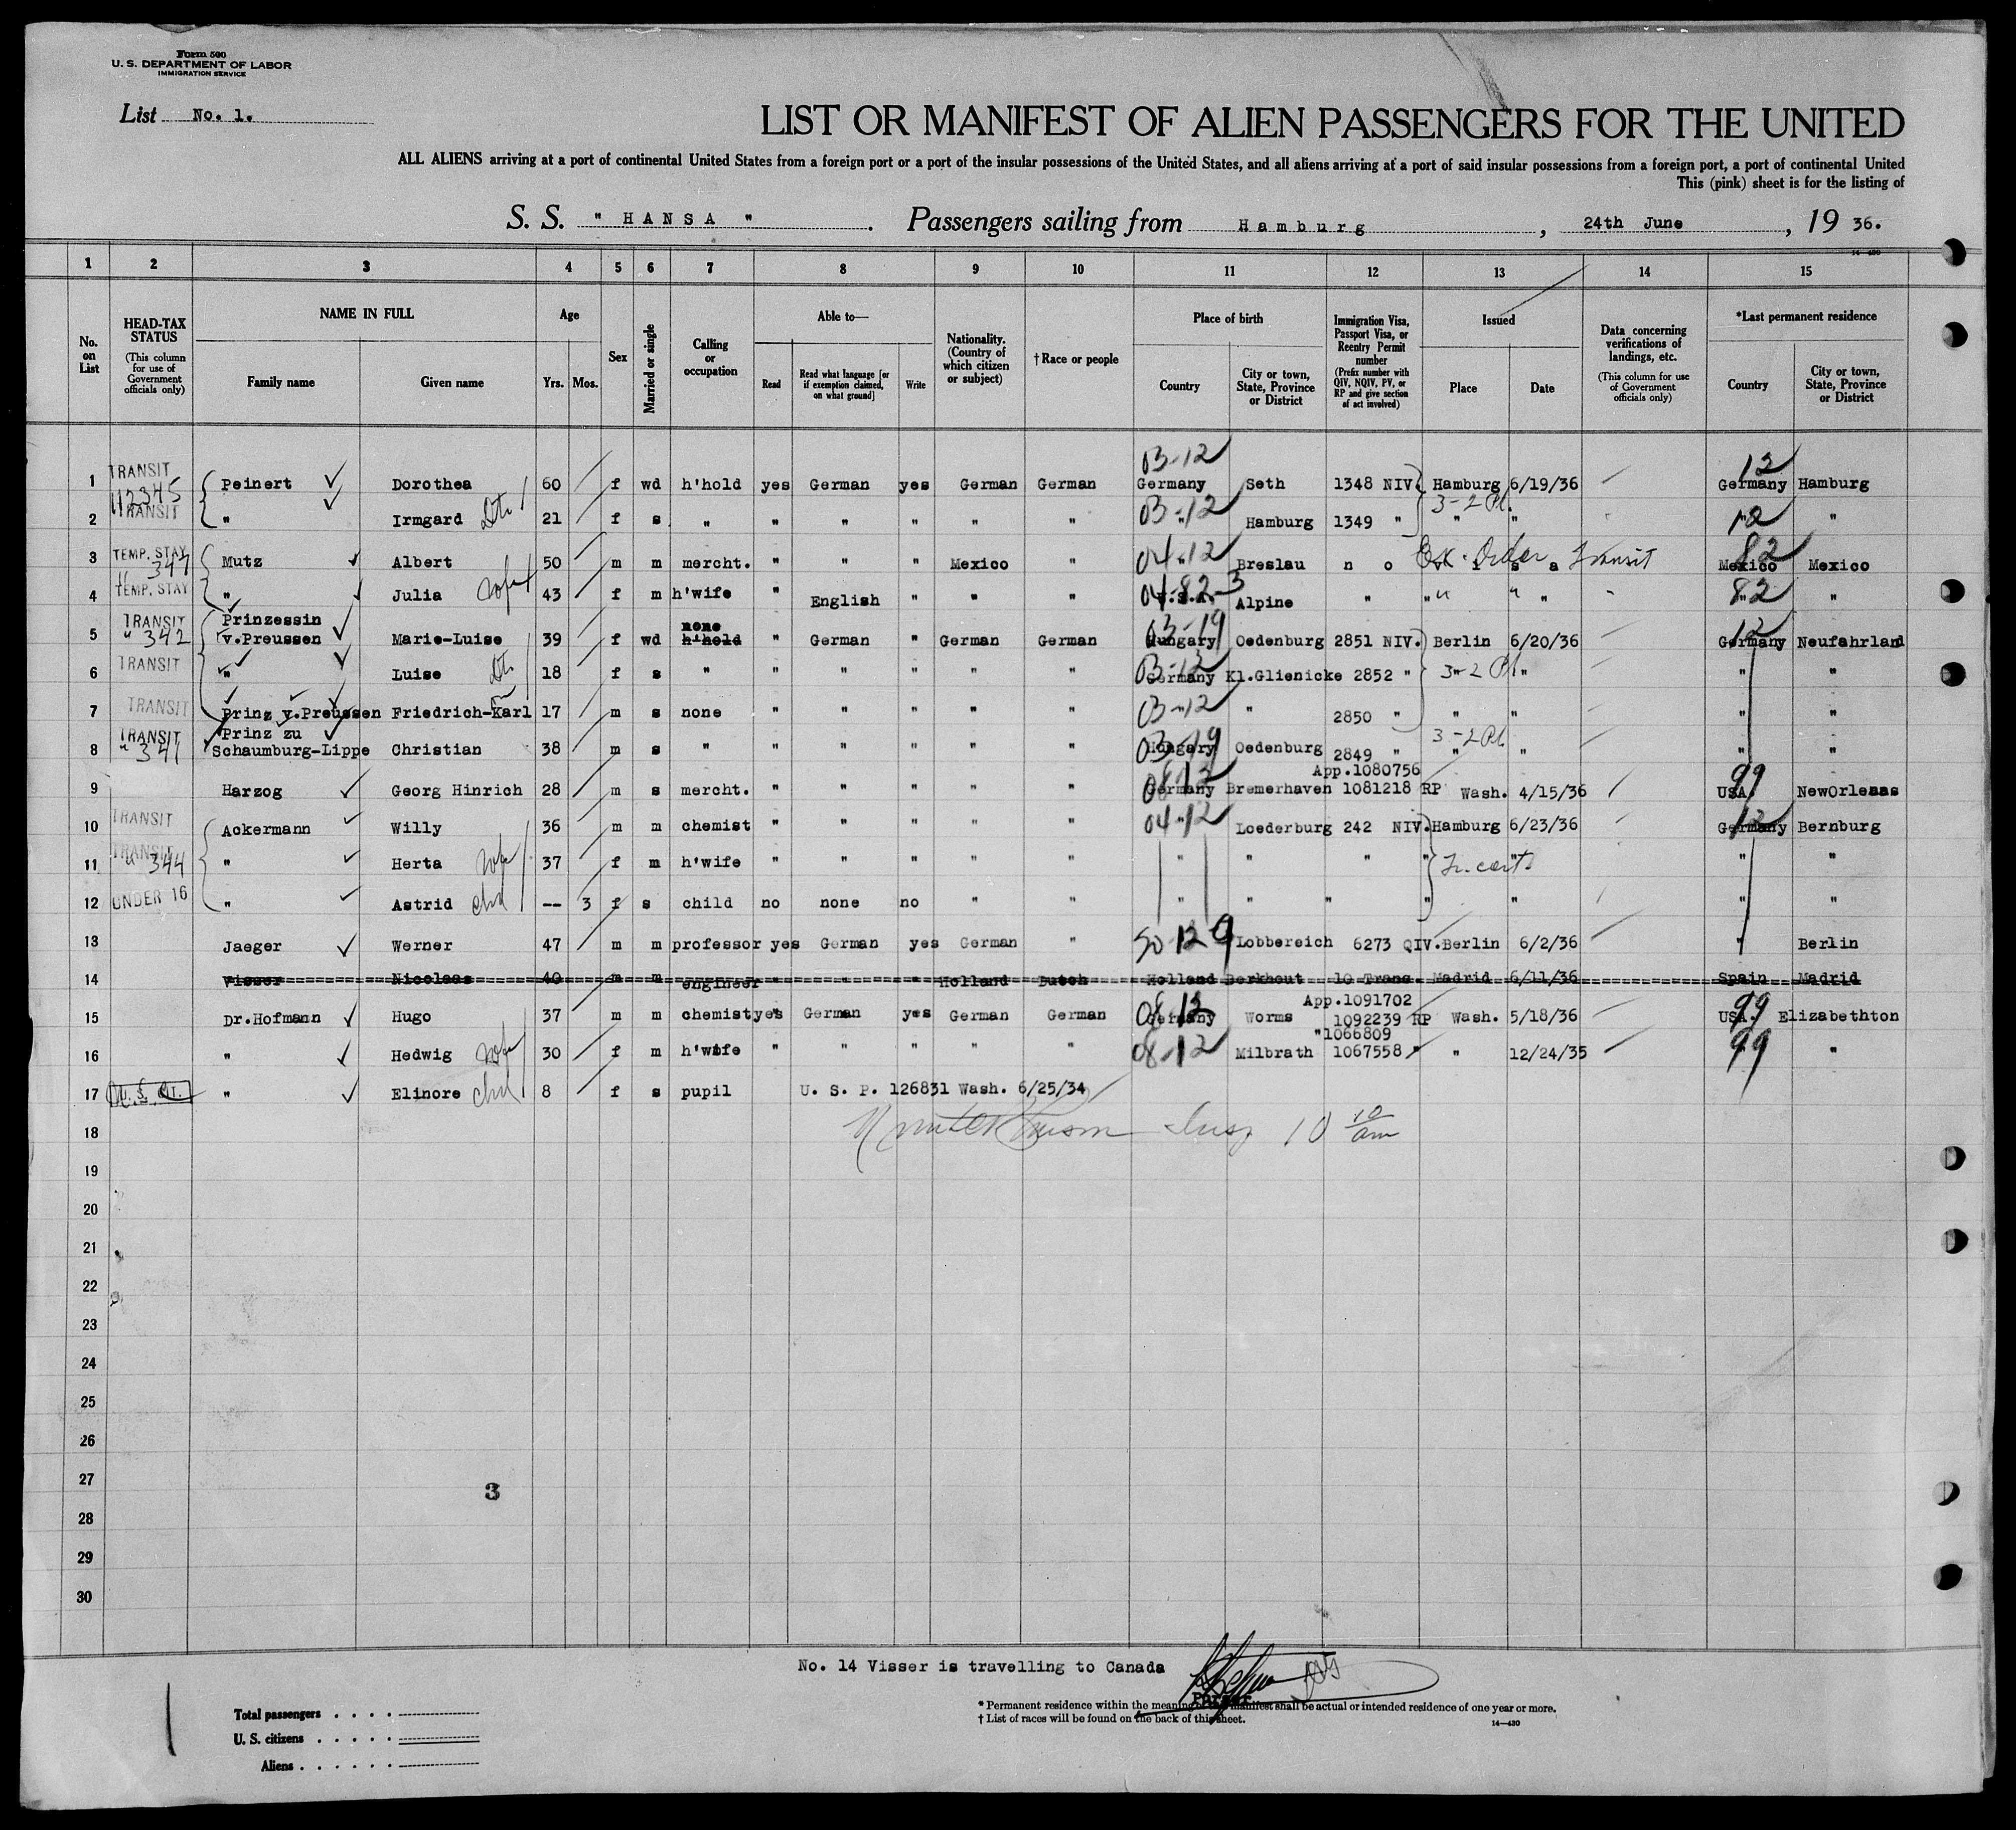 Form 500
U. S. DEPARTMENT OF LABOR
IMMIGRATION SERVICE
List No. 1.
LIST OR MANIFEST OF ALIEN PASSENGERS FOR THE UNITED
ALL ALIENS arriving at a port of continental United States from a foreign port or a port of the insular possessions of the United States, and all aliens arriving at a port of said insular possessions from a foreign port, a port of continental United
This (pink) sheet is for the listing of
S. S. " HANSA " . Passengers sailing from Hamburg , 24th June , 19 36.
14—430
1 2 3 4 5 6 7 8 9 10 11 12 13 14 15
No. on List
HEAD-TAX STATUS (This column for use of Government officials only)
NAME IN FULL Family name Given name
Age Yrs. Mos.
Sex
Married or single
Calling or occupation
Able to— Read Read what language [or if exemption claimed, on what ground] Write
Nationality. (Country of which citizen or subject)
†Race or people
Place of birth Country City or town, State, Province or District
Immigration Visa, Passport Visa, or Reentry Permit number (Prefix number with QIV, NQIV, PV, or RP and give section of act involved)
Issued Place Date
Data concerning verifications of landings, etc. (This column for use of Government officials only)
*Last permanent residence Country City or town, State, Province or District
03-12 12
1 TRANSIT Peinert Dorothea 60 f wd h'hold yes German yes German German Germany Seth 1348 NIV. Hamburg 6/19/36 Germany Hamburg
112345 3-2 Pl.
2 TRANSIT " Irmgard Dtr 21 f s " " " " " " 03-12 " Hamburg 1349 " " " 12 " "
3 TEMP. STAY " 347 Mutz Albert 50 m m mercht. " " " Mexico " 04-12 " Breslau n o v i s a Ex. Order Transit 82 Mexico Mexico
4 TEMP. STAY " Julia wife 43 f m h'wife " English " " " 04-82-3 U.S.A. Alpine " " " " " 82 " "
Prinzessin none
5 TRANSIT " 342 v.Preussen Marie-Luise 39 f wd h'hold " German " German German 03-19 Hungary Oedenburg 2851 NIV. Berlin 6/20/36 12 Germany Neufahrland
6 TRANSIT " Luise Dtr 18 f s " " " " " " 03-12 Germany Kl.Glienicke 2852 " 3-2 Pl. " " " "
7 TRANSIT Prinz v.Preussen Friedrich-Karl 17 m s none " " " " " 03-12 " 2850 " " " " "
Prinz zu 3-2 Pl.
8 TRANSIT " 341 Schaumburg-Lippe Christian 38 m s " " " " " " 03-19 Hongary Oedenburg 2849 " " " " "
App.1080756
9 Harzog Georg Hinrich 28 m s mercht. " " " " " 08-12 Germany Bremerhaven 1081218 RP Wash. 4/15/36 99 USA. NewOrleans
10 TRANSIT Ackermann Willy 36 m m chemist " " " " " 04-12 " Loederburg 242 NIV. Hamburg 6/23/36 12 Germany Bernburg
11 TRANSIT " 344 " Herta wife 37 f m h'wife " " " " " " " " " " Tr. cert. " "
12 UNDER 16 " Astrid chd -- 3 f s child no none no " " " " " " " " "
13 Jaeger Werner 47 m m professor yes German yes German " 50-12 9 Lobbereich 6273 QIV. Berlin 6/2/36 " Berlin
14 Visser Nicolaas 40 m m engineer " " " Holland Dutch Holland Berkhout 10 Trans. Madrid 6/11/36 Spain Madrid
App.1091702
15 Dr.Hofmann Hugo 37 m m chemist yes German yes German German 08-12 Germany Worms 1092239 RP Wash. 5/18/36 99 USA. Elizabethton
"1066809
16 " Hedwig wife 30 f m h'wife " " " " " 08-12 Milbrath 1067558 " " 12/24/35 99 " "
17 U. S. CIT. " Elinore chd 8 f s pupil U. S. P. 126831 Wash. 6/25/34
18 Insp 10 10 am
19
20
21
22
23
24
25
26
27
3
28
29
30
No. 14 Visser is travelling to Canada
Purser
* Permanent residence within the meaning of this manifest shall be actual or intended residence of one year or more.
† List of races will be found on the back of this sheet.
14—430
Total passengers
U. S. citizens
Aliens